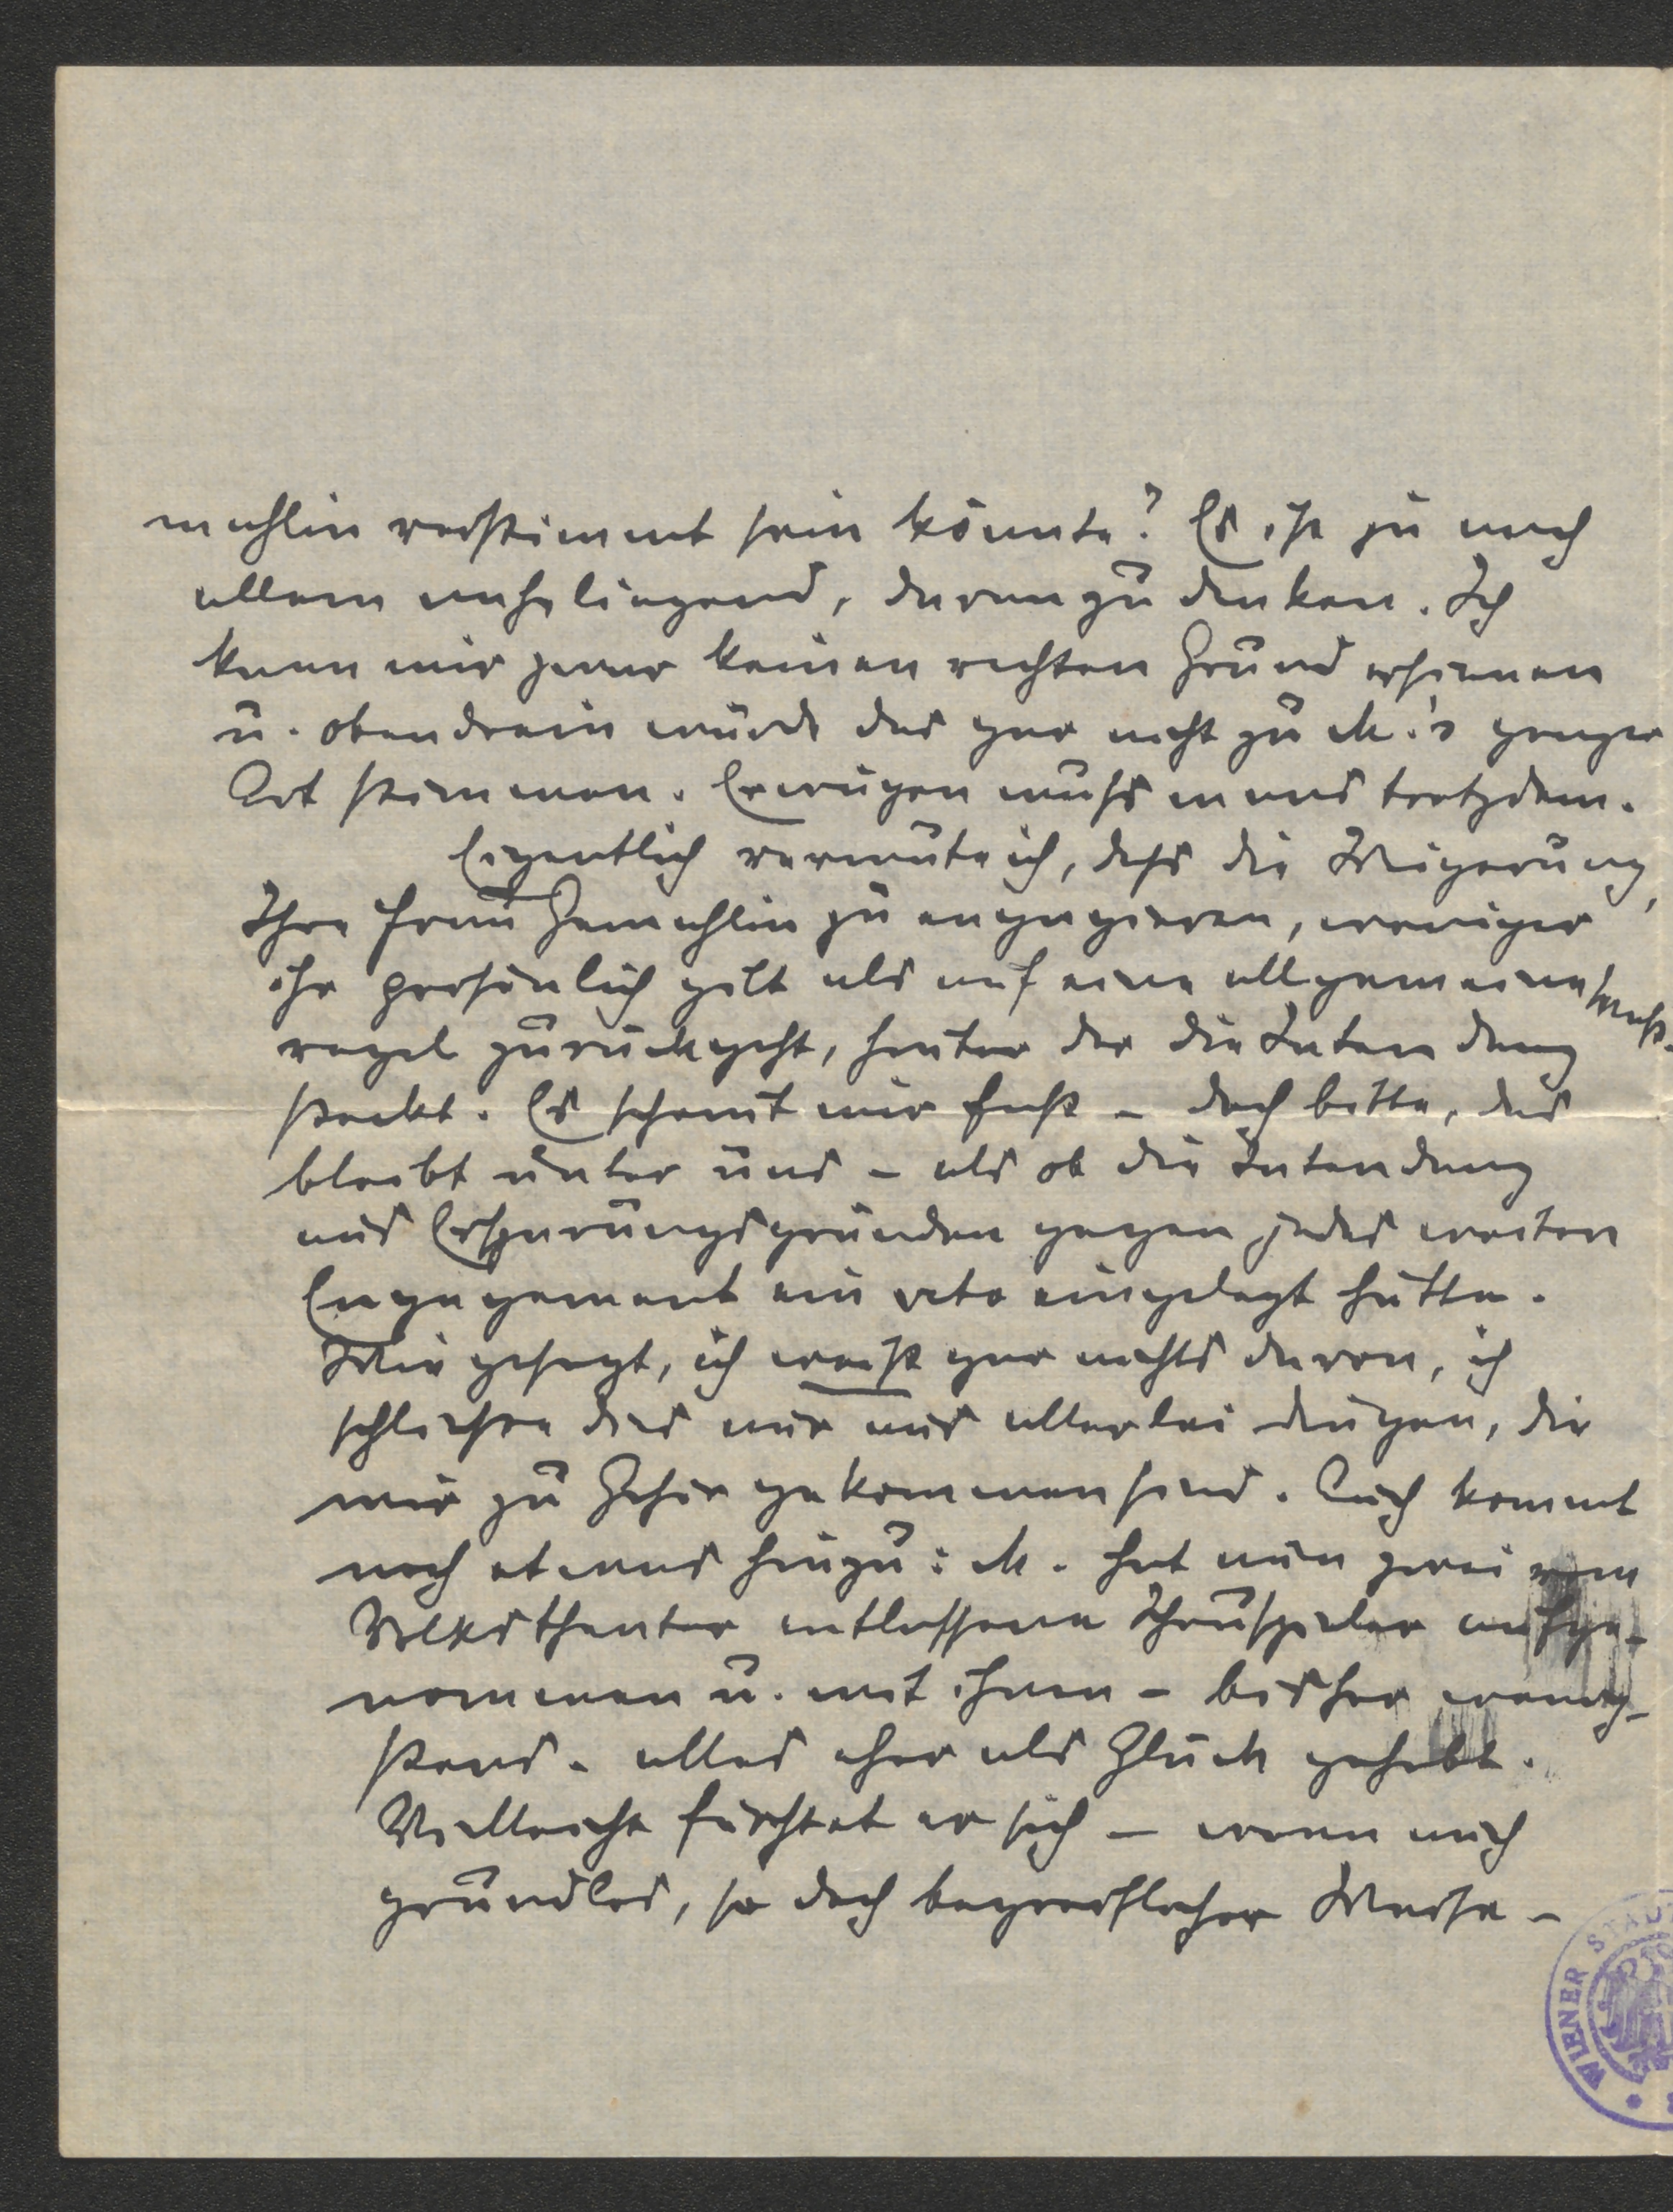 mahlin verstimmt sein könnte? Es ist ja nach
allem naheliegend, daran zu denken. Ich
kann mir zwar keinen rechten Grund ersinnen
u. obendrein würde das gar nicht zu M.'s ganzer
Art stimmen. Erwägen muss man's trotzdem.
Eigentlich vermute ich, dass die Weigerung,
Ihre Frau Gemahlin zu engagieren, weniger
ihr persönlich gilt als auf eine allgemeine Mass-
regel zurückgeht, hinter der die Intendanz
steckt. Es scheint mir fast – doch bitte, das
bleibt unter uns – als ob die Intendanz
aus Ersparungsgründen gegen jedes weitere
Engagement ein veto eingelegt hätte.
Wie gesagt, ich weiß gar nichts davon, ich
schliesse dies nur aus allerlei Dingen, die
mir zu Gehör gekommen sind. Auch kommt
noch etwas hinzu: M. hat nun zwei vom
Volkstheater entlassene Schauspieler aufge-
nommen u. mit ihnen – bisher wenig-
stens – alles eher als Glück gehabt.
Vielleicht fürchtet er sich – wenn auch
grundlos, so doch begreiflicher Weise –
WIENER STAD